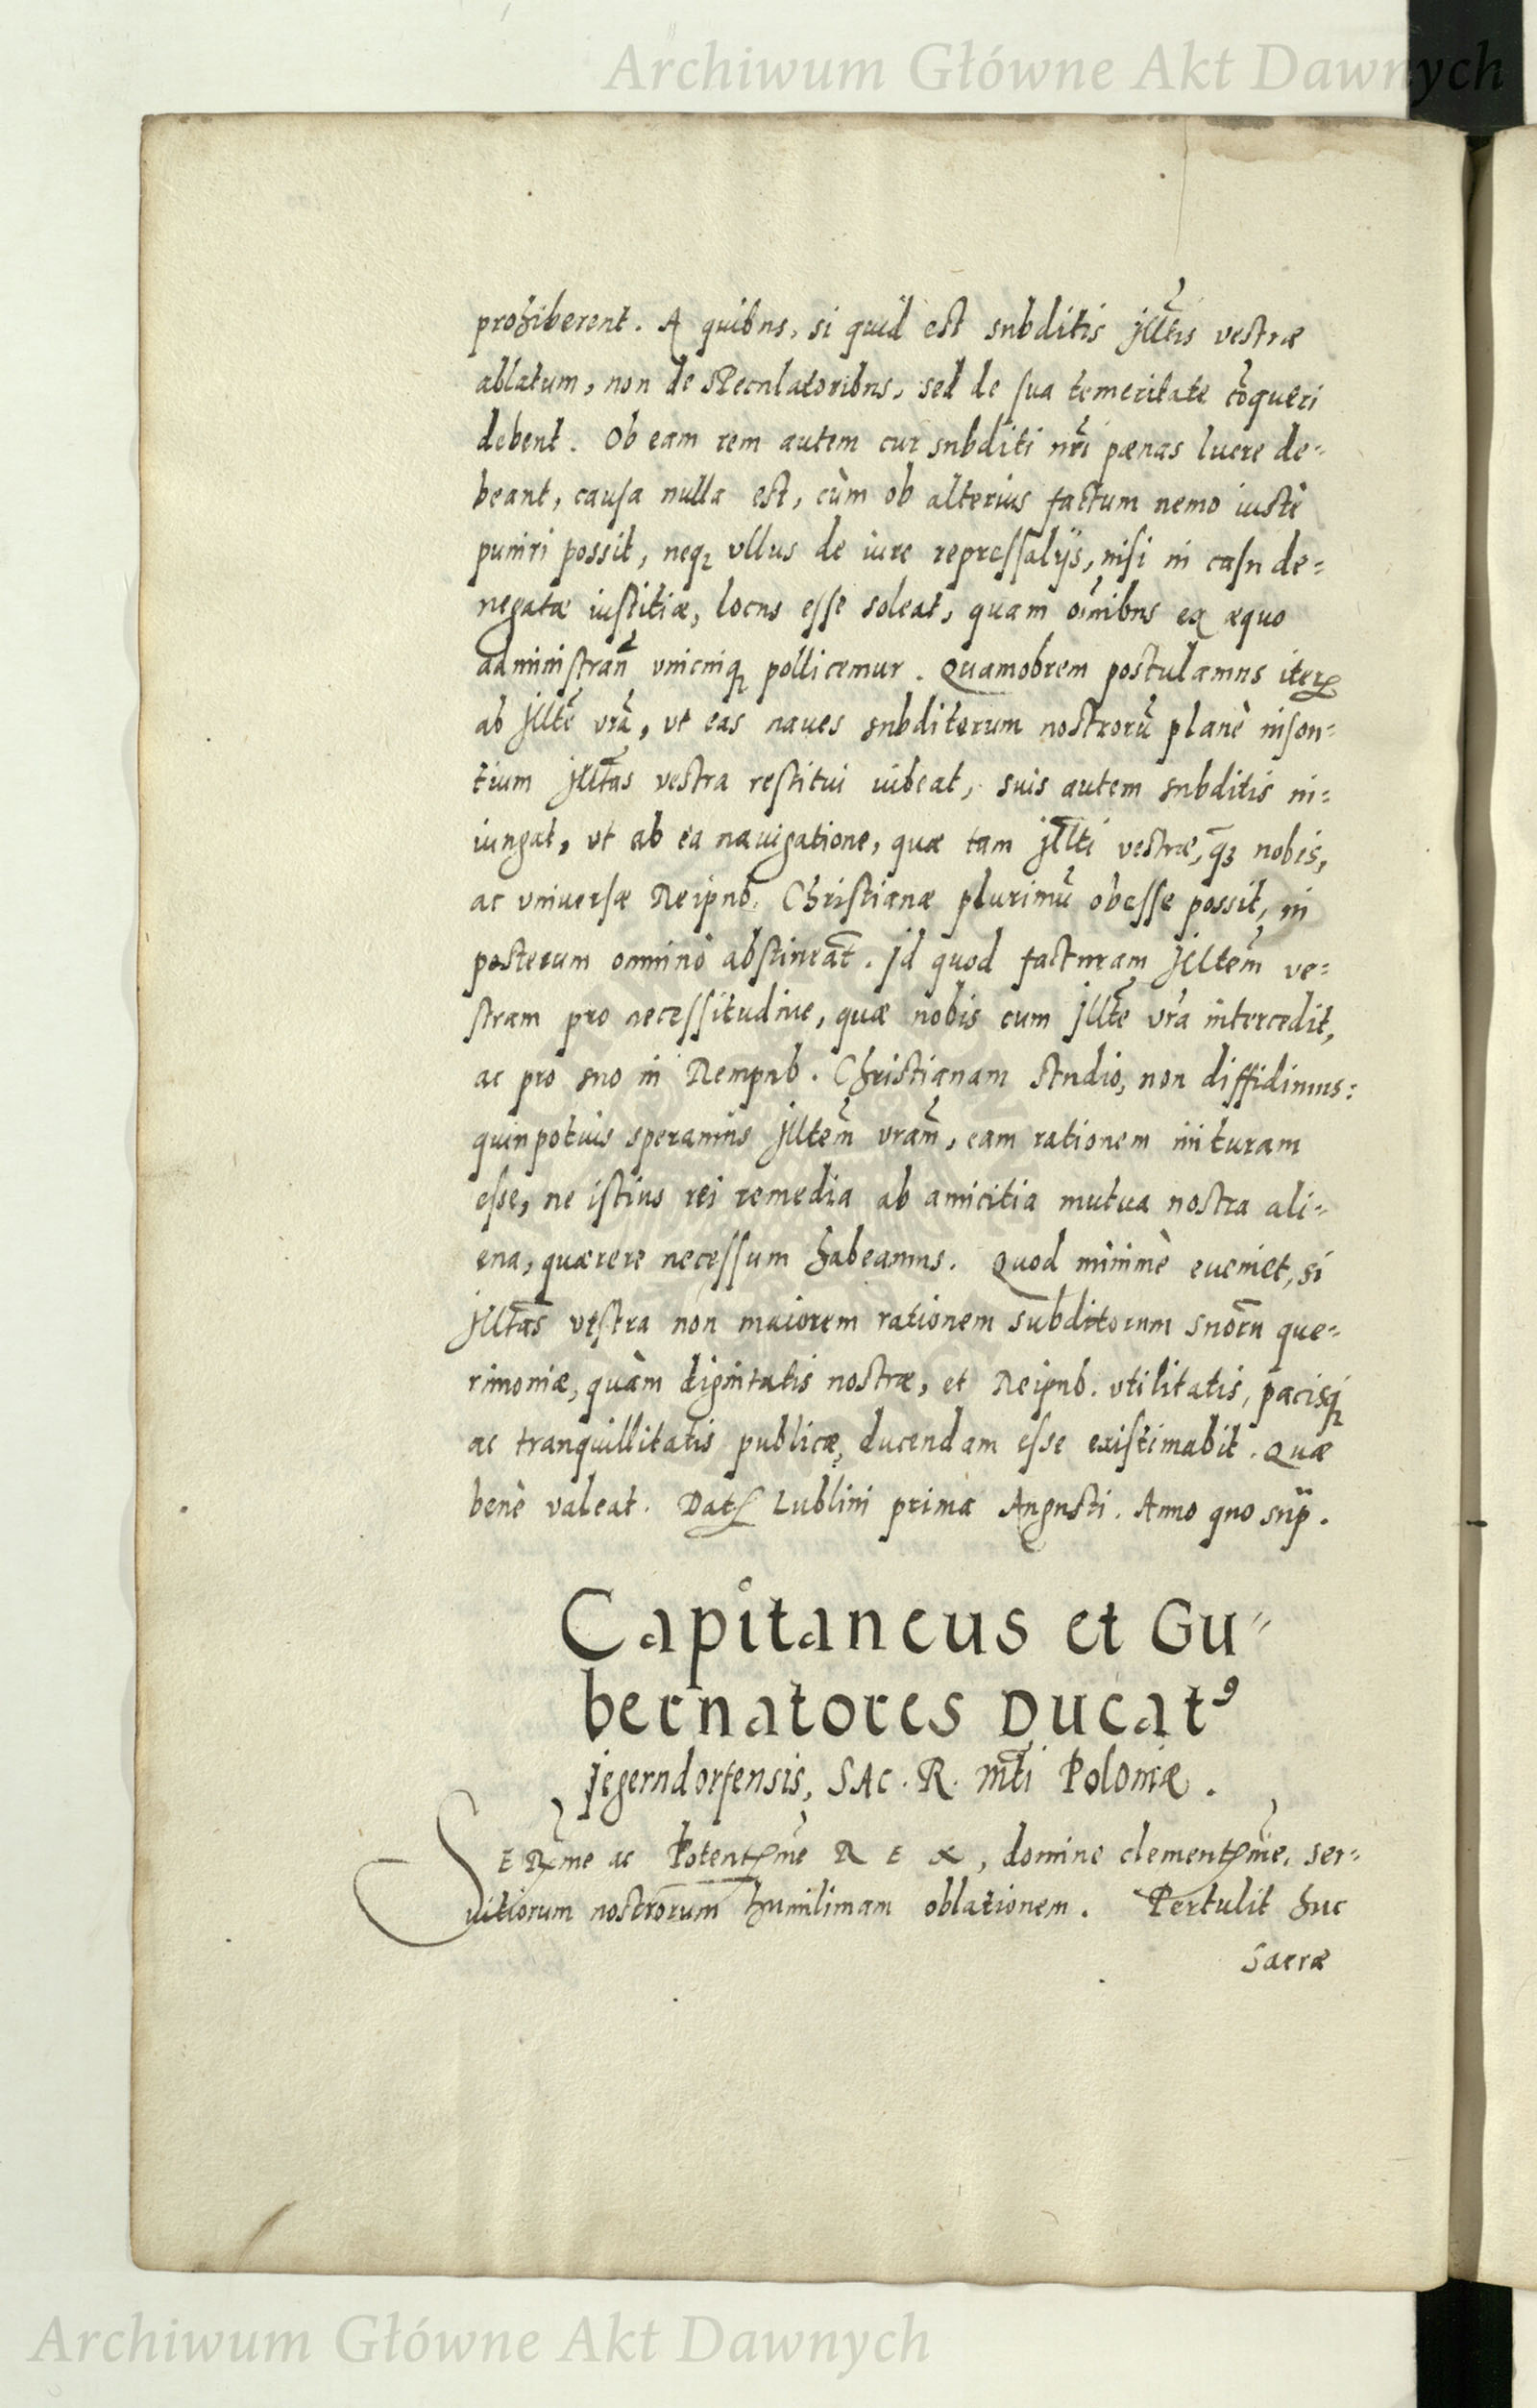 Archiwum Główne Akt Dawnych
prohiberent. A quibus, si quid est subditis Jlltis vestræ
ablatum, non de speculatoribus, sed de sua temeritate cōqueri
debent. Ob eam rem autem cur subditi nrī pænas luere de-
beant, causa nulla est, cùm ob alterius factum nemo iustè
puniri possit, neq; vllus de iure repressalijs, nisi in casu de=
negatæ iustitiæ, locus esse soleat, quam oĩnibus ex æquo
administran̄ vnicuiq; pollicemur. Quamobrem postulamus iterꝝ
ab Jllte vrā, vt eas naues subditorum nostrorū planè inson=
tium Jlltas vestra restitui iubeat, suis autem subditis in=
iungat, vt ab ea nauigatione, quæ tam Jllti vestræ, q̃ȝ nobis,
ac vniuersæ Reipub. Christianæ plurimū obesse possit, in
posterum omninò abstineāt. Jd quod facturam Jlltem̄ ve=
stram pro necessitudine, quæ nobis cum Jllte vrā intercedit,
ac pro suo in Rempub. Christianam studio, non diffidimus:
quinpotuis speramus Jlltem̄ vram̄, eam rationem inituram
esse, ne istius rei remedia ab amicitia mutua nostra ali-
ena, quærere necessum habeamus. Quod minimè eueniet, si
Jlltas vestra non maiorem rationem subditorum suorū que-
rimoniæ, quàm dignitatis nostræ, et Reipub. vtilitatis, pacisq;
ac tranquillitatis publicæ, ducendam esse existimabit. Quæ
benè valeat. Datꝭ Lublini prima Augusti. Anno quo sup̄.
Capitaneus et Gu-
bernatores Ducatꝰ
Jegerndorfensis, SAc. R. Mti Poloniæ.
SERme ac Potentꝭme REX, domine clementꝭme, ser-
uitiorum nostrorum humilimam oblationem. Pertulit huc
Sacræ
Archiwum Główne Akt Dawnych